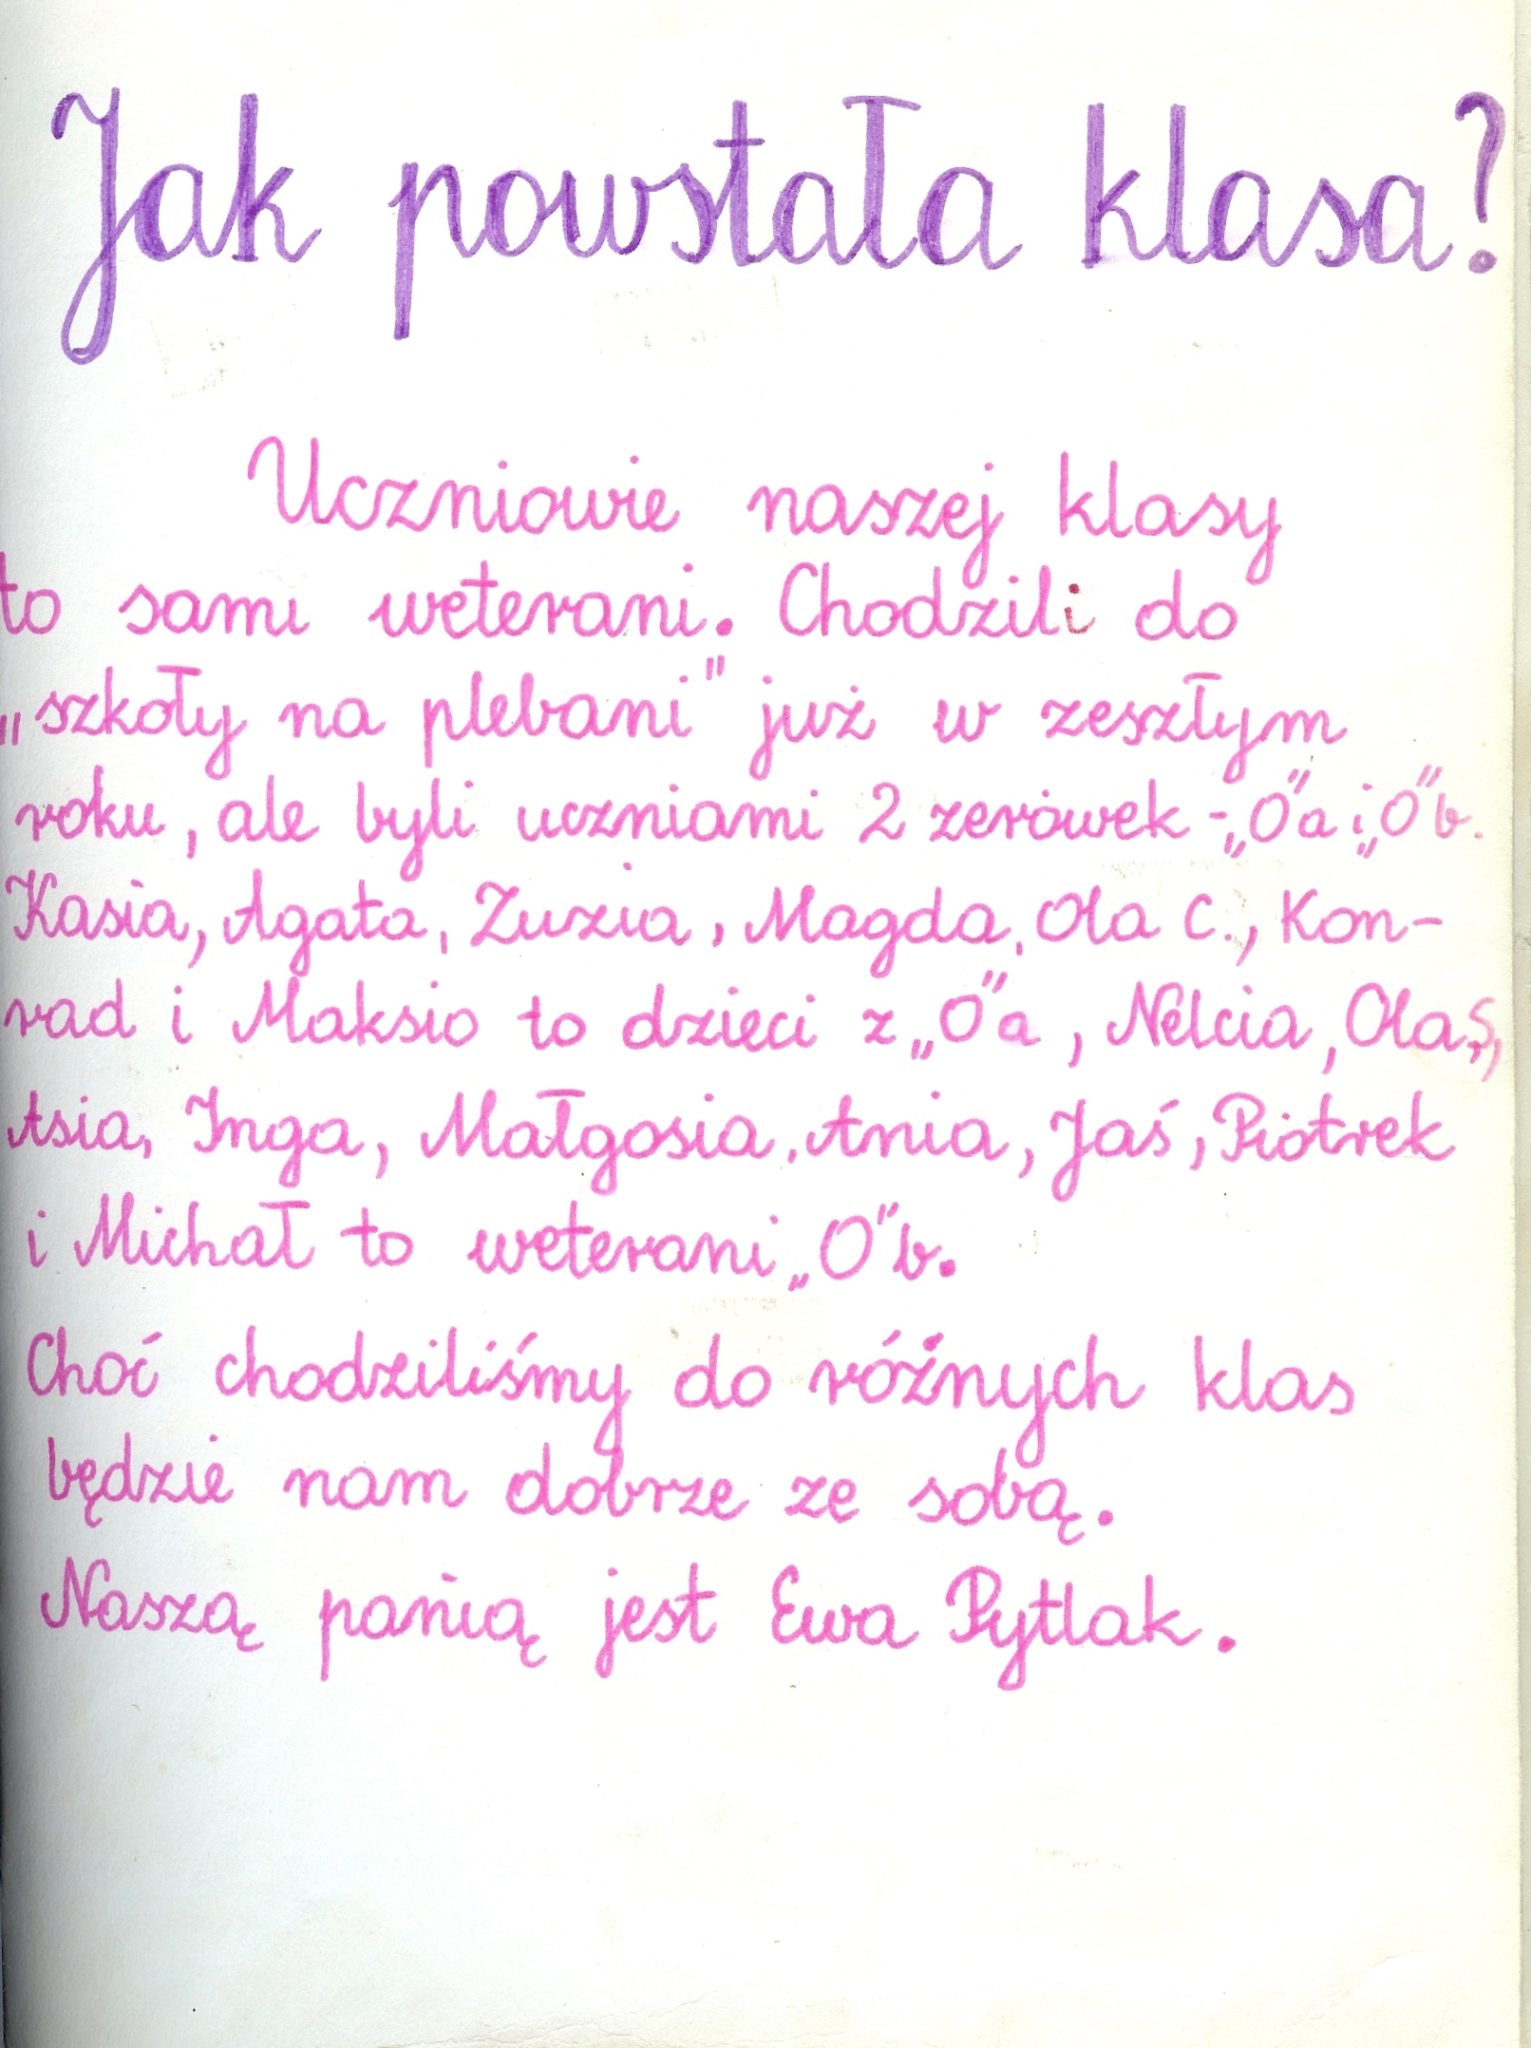 Jak powstała klasa?
Uczniowie naszej klasy
to sami weterani. Chodzili do
„szkoły na plebani" już w zeszłym
roku, ale byli uczniami 2 zerówek - „0"a i „0"b.
Kasia, Agata, Zuzia, Magda, Ola C., Kon-
rad i Maksio to dzieci z „0"a, Nelcia, Ola Ś,
Asia, Inga, Małgosia, Ania, Jaś, Piotrek
i Michał to weterani „0"b.
Choć chodziliśmy do różnych klas
będzie nam dobrze ze sobą.
Naszą panią jest Ewa Pytlak.